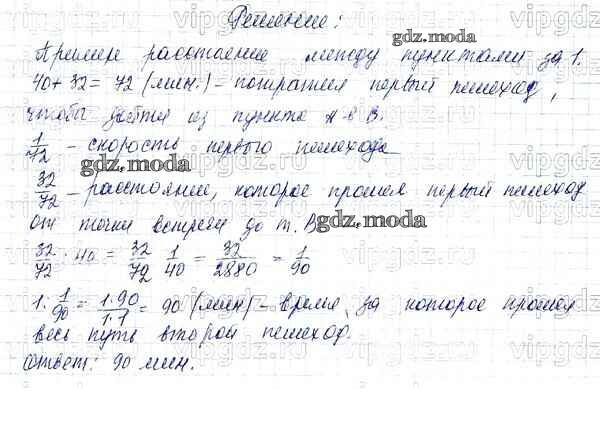 Решение:
gdz.moda
Примем расстояние между пунктами за 1.
40 + 32 = 72 (мин.) – потратил первый пешеход,
чтобы дойти из пункта А в В.
1/72 – скорость первого пешехода
gdz.moda
32/72 – расстояние, которое прошел первый пешеход
от точки встречи до т. В
gdz.moda
32/72 : 40 = 32/72 · 1/40 = 32/2880 = 1/90
1 : 1/90 = 1·90/1·1 = 90 (мин) – время, за которое прошел
весь путь второй пешеход.
Ответ: 90 мин.
vipgdz